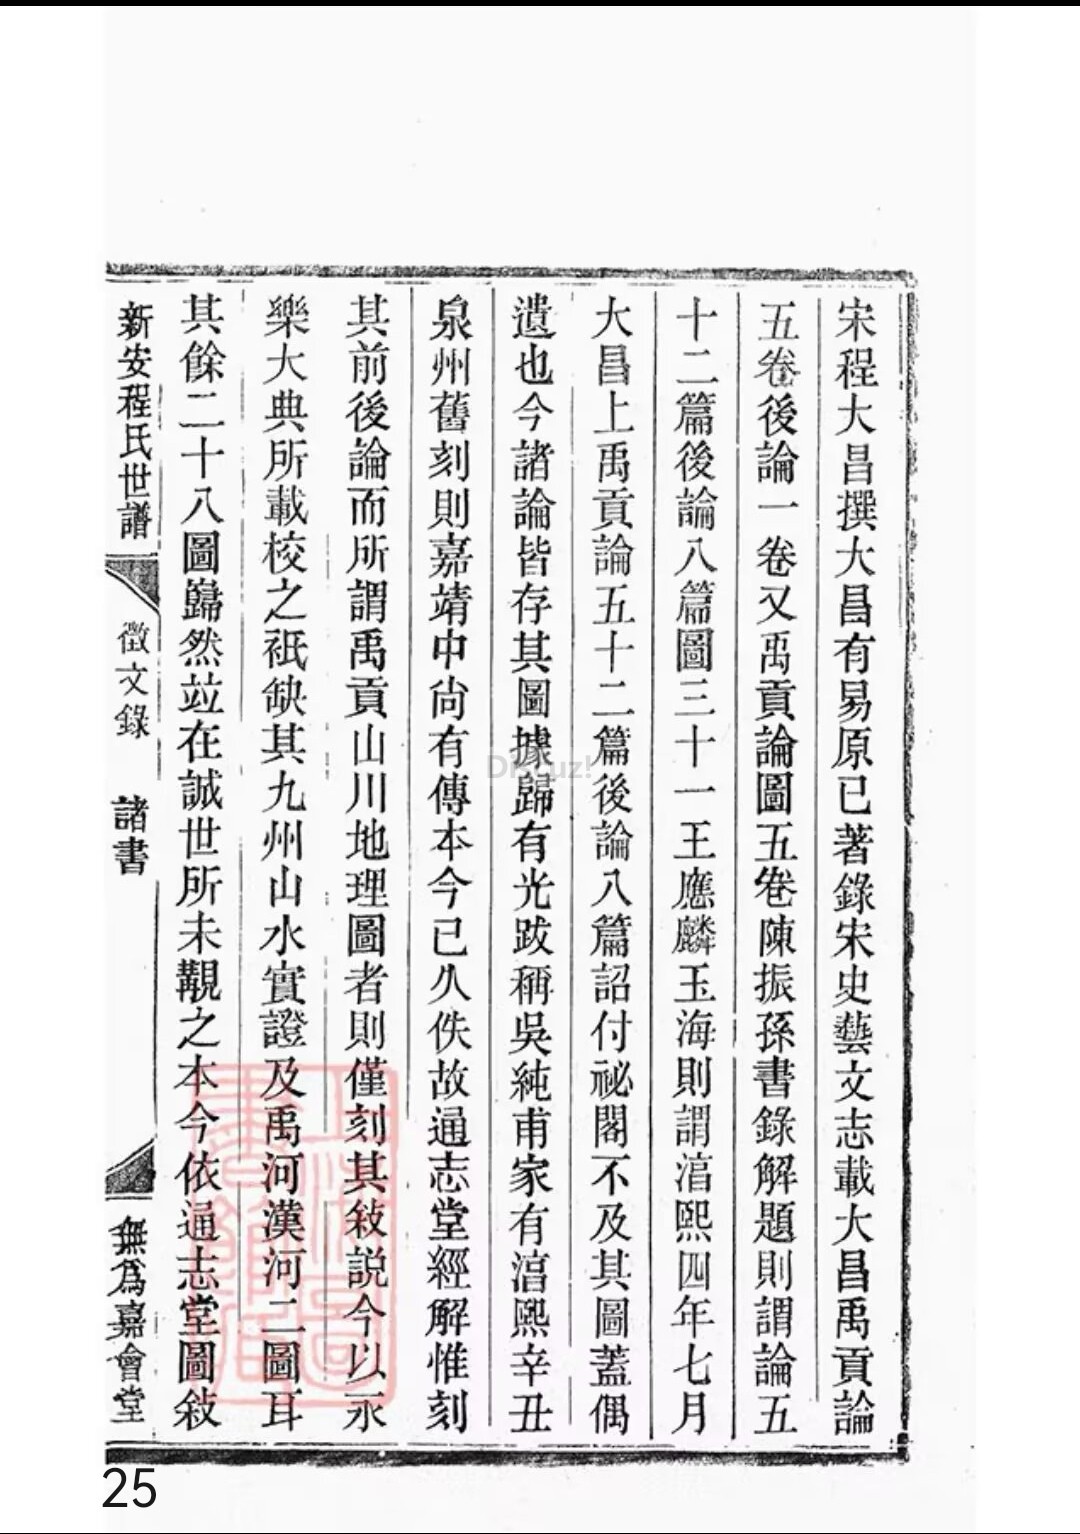 宋程大昌撰大昌有易原已著錄宋史藝文志載大昌禹貢論
五卷後論一卷又禹貢論圖五卷陳振孫書錄解題則謂論五
十二篇後論八篇圖三十一王應麟玉海則謂湻熙四年七月
大昌上禹貢論五十二篇後論八篇詔付祕閣不及其圖蓋偶
遺也今諸論皆存其圖據歸有光跋稱吳純甫家有湻熙辛丑
泉州舊刻則嘉靖中尚有傳本今已久佚故通志堂經解惟刻
其前後論而所謂禹貢山川地理圖者則僅刻其敍說今以永
樂大典所載校之祇缺其九州山水實證及禹河漢河二圖耳
其餘二十八圖巋然竝在誠世所未覯之本今依通志堂圖敍
新安程氏世譜 徵文錄 諸書 無爲嘉會堂
上海圖書館藏
Discuz!
25